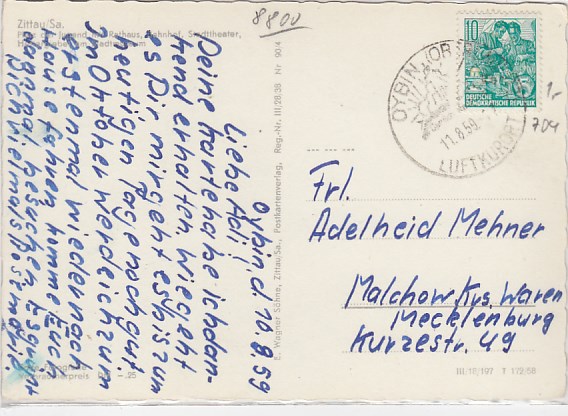 Zittau/Sa.
Platz der Jugend mit Rathaus, Bahnhof, Stadttheater,
8800
Oybin, d. 10.8.59
Liebe Adi!
Deine Karte habe ich dan-
kend erhalten. Wie geht
es Dir, mir geht es bis zum
heutigen Tage noch gut.
Im Oktober werde ich zum
erstenmal wieder nach
Hause fahren, komme Euch
E. Wagner Söhne, Zittau/Sa., Postkartenverlag, Reg.-Nr. III/28/38 Nr 90/4
10
DEUTSCHE
DEMOKRATISCHE REPUBLIK
OYBIN
11.8.59
LUFTKURORT
1,-
704
Frl.
Adelheid Mehner
Malchow Krs. Waren
Mecklenburg
Kurzestr. 49
III/18/197 T 172/58
Verbraucherpreis DM -.25